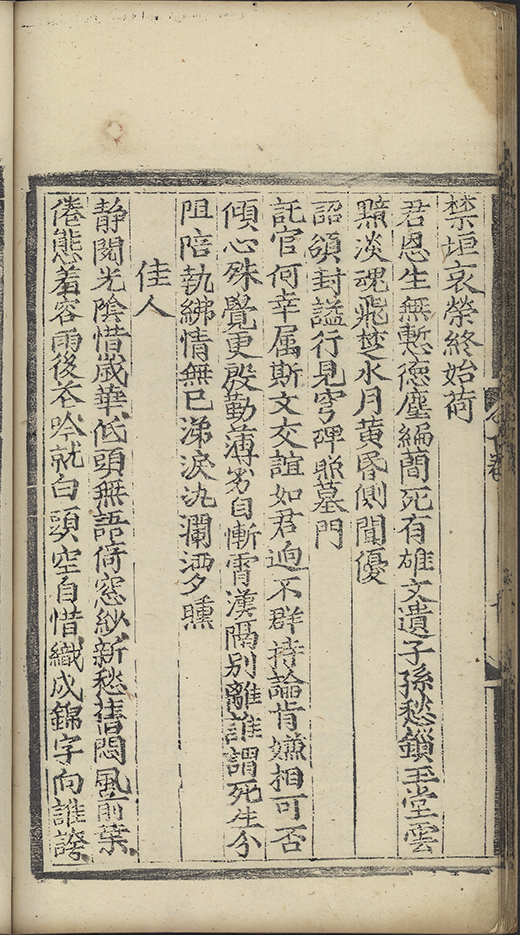 禁垣哀榮終始荷
君恩生無慙德塵編蕳死有雄文遺子孫愁鎖玉堂雲
黯淡魂飛楚水月黃昏側聞優
詔頒封謚行見穹碑照墓門
託官何幸属斯文交誼如君逈不群持論肯嫌相可否
傾心殊覺更殷勤薄劣自慚霄漢隔別離誰謂死生分
阻陪執紼情無已涕淚汍瀾洒夕曛
佳人
静閱光陰惜歲華低頭無語倚窓紗新愁舊悶風前葉
倦態羞容雨後花吟就白頭空自惜織成錦字向誰誇